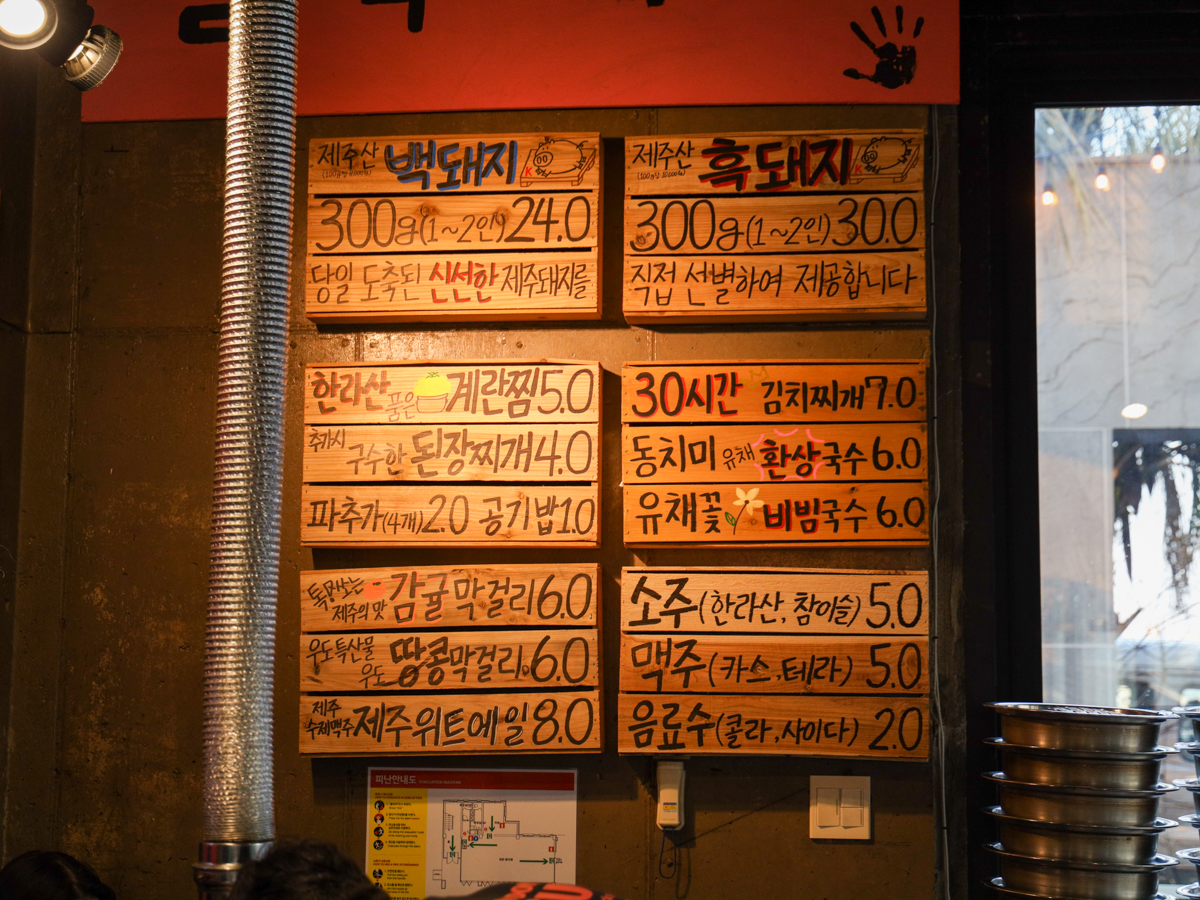 제주산 백돼지
300g(1~2인) 24.0
당일 도축된 신선한 제주돼지를
제주산 흑돼지
300g(1~2인) 30.0
직접 선별하여 제공합니다
한라산 품은 계란찜 5.0
추가시 구수한 된장찌개 4.0
파추가(4개) 2.0 공기밥 1.0
30시간 김치찌개 7.0
동치미 유채 환상국수 6.0
유채꽃 비빔국수 6.0
톡쏘는 제주의 맛 감귤막걸리 6.0
우도특산물 우도 땅콩막걸리 6.0
제주 수제맥주 제주위트에일 8.0
소주(한라산, 참이슬) 5.0
맥주(카스, 테라) 5.0
음료수(콜라, 사이다) 2.0
피난안내도